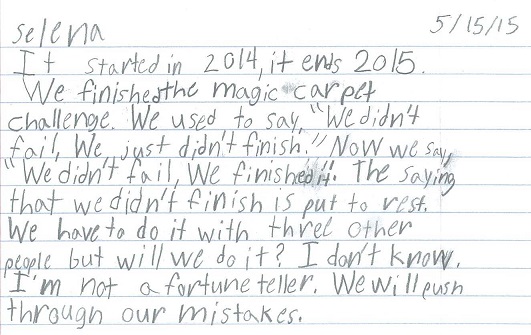 selena 5/15/15
It started in 2014, it ends 2015.
We finished the magic carpet
challenge. We used to say, "We didn't
fail, We just didn't finish." Now we say,
"We didn't fail, We finished it". The saying
that we didn't finish is put to rest.
We have to do it with three other
people but will we do it? I don't know.
I'm not a fortune teller. We will push
through our mistakes.